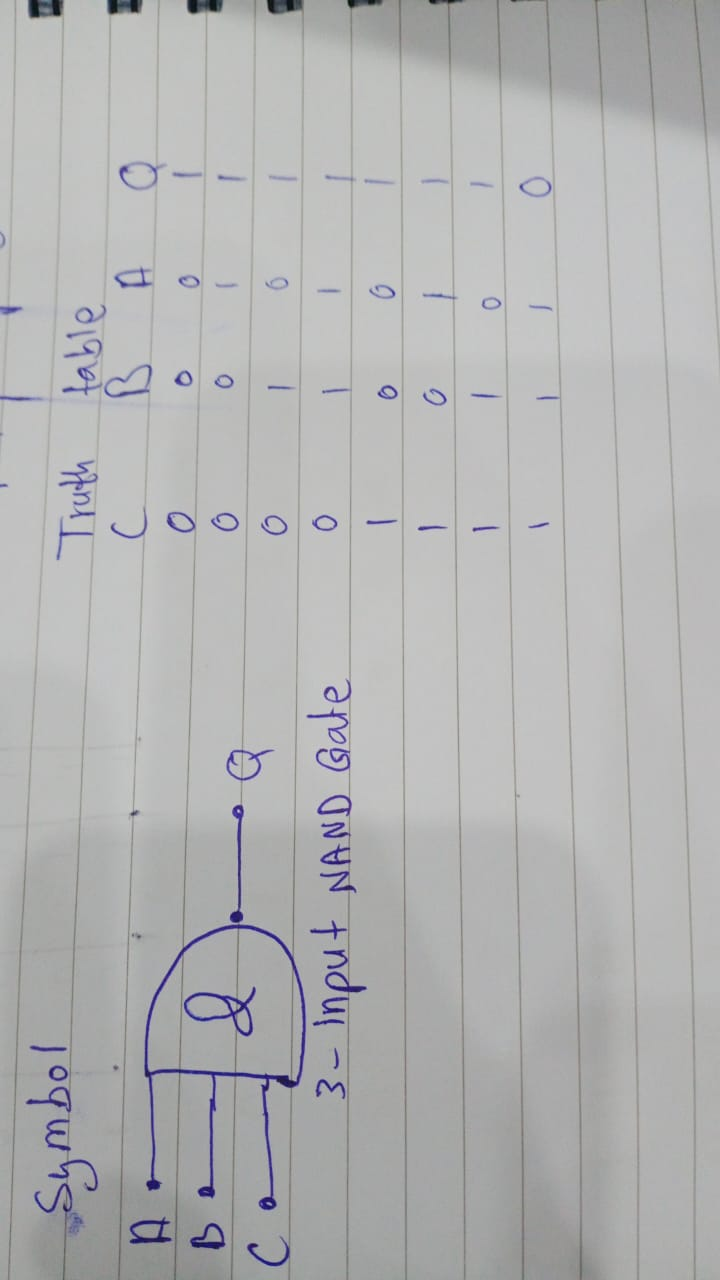 Symbol
A
B
C
&
Q
3-Input NAND Gate
Truth table
C B A Q
0 0 0 1
0 0 1 1
0 1 0 1
0 1 1 1
1 0 0 1
1 0 1 1
1 1 0 1
1 1 1 0